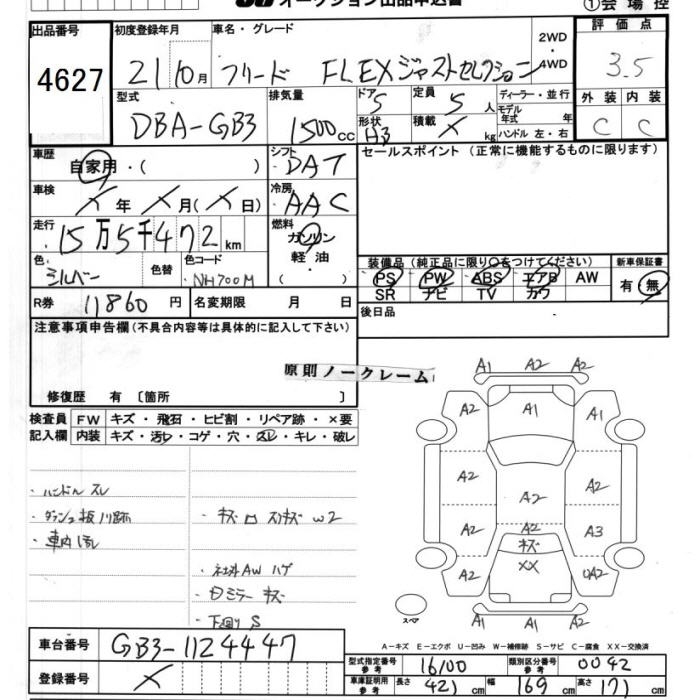 オークション出品申込書
①会場控
出品番号 4627
初度登録年月 21 10月
車名・グレード フリード FLEXジャストセレクション
2WD・4WD
評価点 3.5
外装 C 内装 C
型式 DBA-GB3
排気量 1500cc
ドア 5 形状 HB
定員 5人
積載 × kg
ディーラー・並行
モデル年式 年
ハンドル 左・右
車歴 自家用・( )
シフト DAT
セールスポイント (正常に機能するものに限ります)
車検 ×年 ×月(×日)
冷房 AAC
走行 15万5千472km
燃料 ガソリン 軽・油 ( ・ )
色 シルバー 色替 色コード NH700M
装備品(純正品に限り○をつけてください)
PS PW ABS エアB AW
SR ナビ TV カワ
新車保証書 有・無
R券 11860円 名変期限 月 日
後日品
注意事項申告欄(不具合内容等は具体的に記入して下さい)
原則ノークレーム
修復歴 有 〔箇所 〕
検査員 FW キズ・飛石・ヒビ割・リペア跡・×要
記入欄 内装 キズ・汚レ・コゲ・穴・スレ・キレ・破レ
・ハンドル スレ
・ダッシュ板 ノリ跡
・車内 汚れ
・キズ ロ スリキズ W2
・社外AW ハゲ
・ミラー キズ
・下廻り S
A1 A2 A2
A2 A1 A2
A2 A2 A2
A2 A2 キズ A3
A2 XX UA2
A1 A2 A2
スペア
A-キズ E-エクボ U-凹み W-補修跡 S-サビ C-腐食 XX-交換済
車台番号 GB3-1124447
登録番号 ×
型式指定番号 参考 16100 類別区分番号 参考 0042
車庫証明用 参考 長さ 421cm 幅 169cm 高さ 171cm